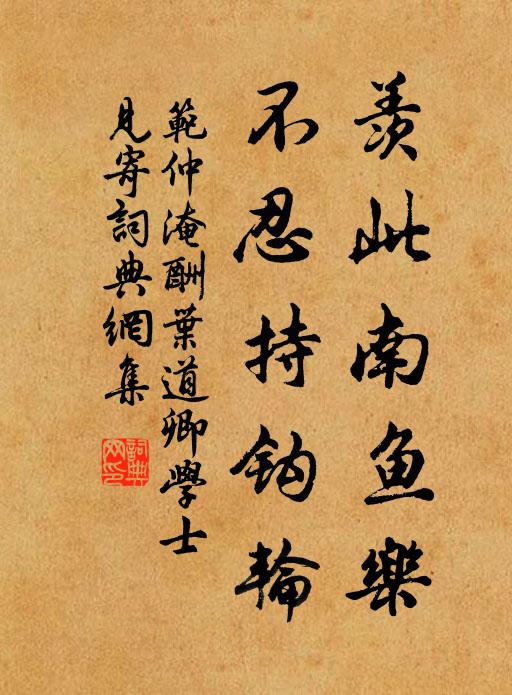 羨此南鱼樂
不忍持鈎輪
範仲淹酬葉道卿學士
見寄詞典網集
詞典網印